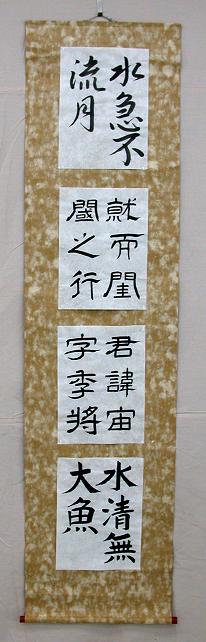 水急不
流月
就而閨
閾之行
君諱宙
字季將
水清無
大魚